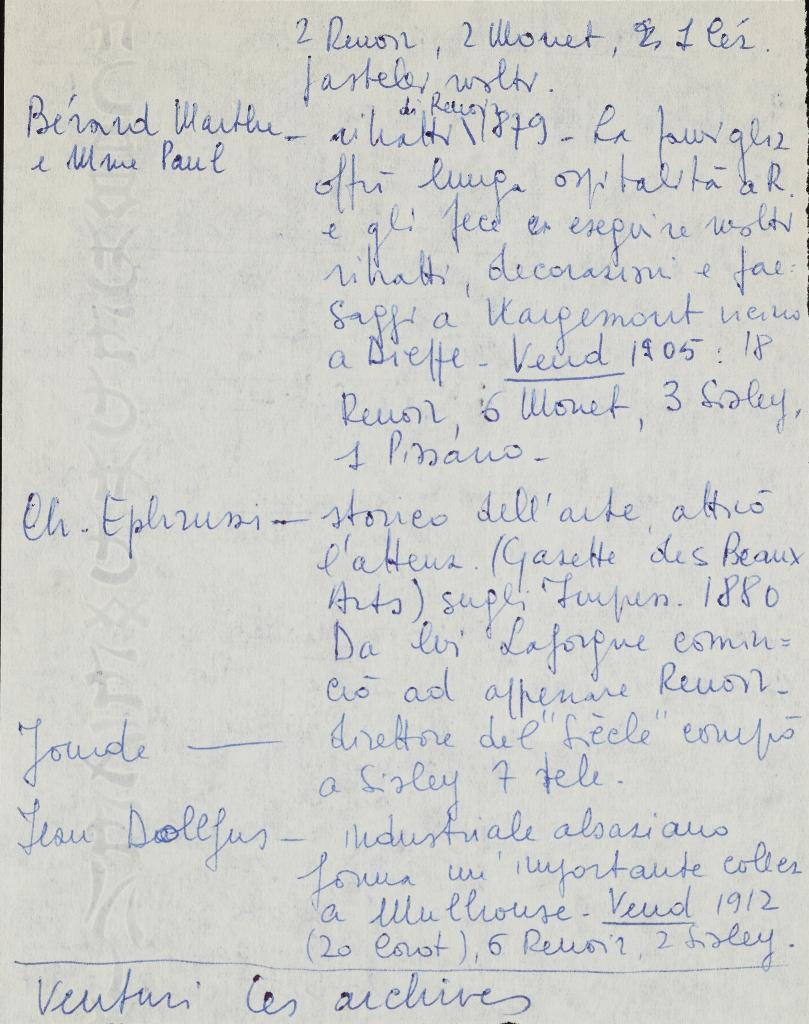 2 Renoir, 2 Monet, 1 Céz.
pastelli molti.
Bérard Marthe – ritratti di Renoir 1879 – La famiglia
e Mme Paul offrì lunga ospitalità a R.
e gli fece eseguire molti
ritratti, decorazioni e pae-
saggi a Wargemont vicino
a Dieppe – Vend 1905 : 18
Renoir, 6 Monet, 3 Sisley,
1 Pissarro –
Ch. Ephrussi – storico dell'arte, attirò
l'attenz. (Gazette des Beaux
Arts) sugli Impress. 1880
Da lui Laforgue comin=
ciò ad apprezzare Renoir –
Jourde — direttore del "Siècle" comprò
a Sisley 7 tele.
Jean Dollfus – industriale alsaziano
forma un'importante collez
a Mulhouse – Vend 1912
(20 Corot), 6 Renoir, 2 Sisley.
Venturi Les archives